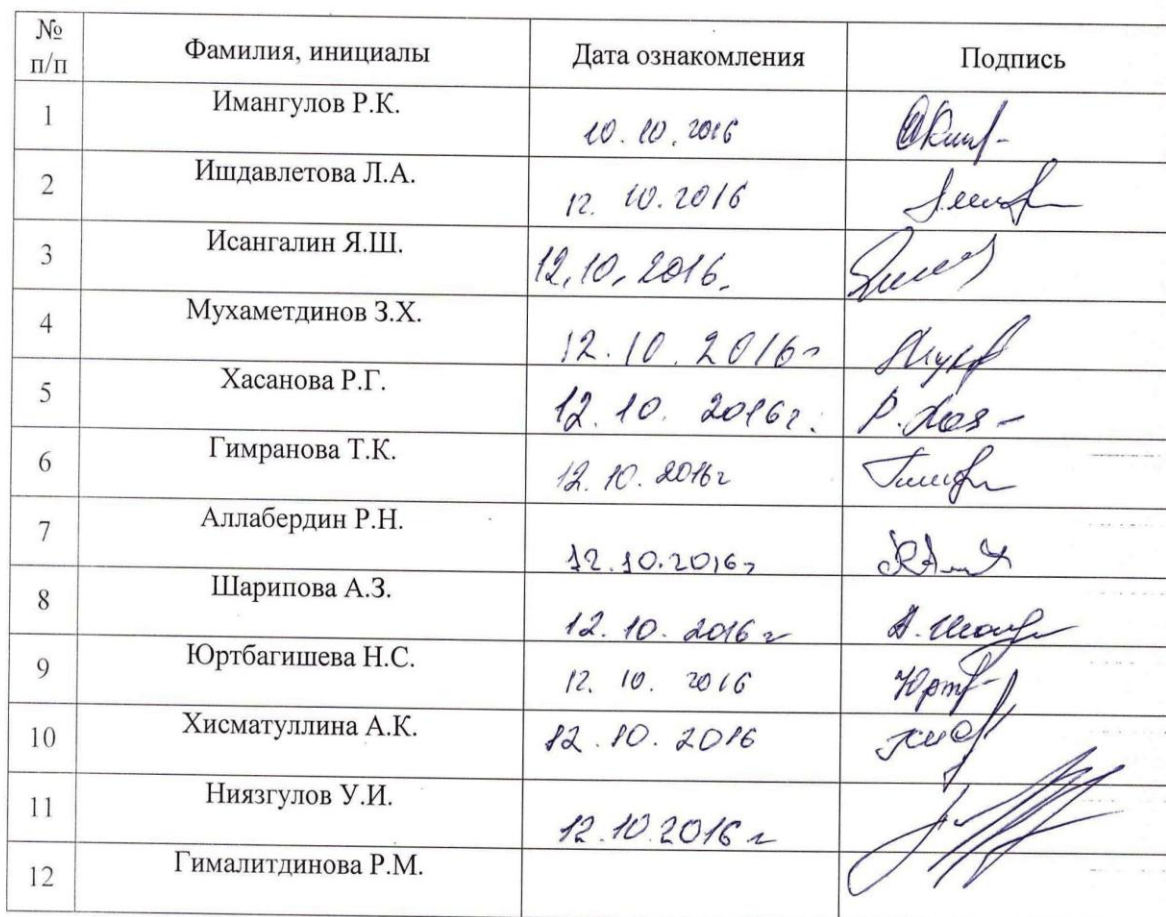 № п/п Фамилия, инициалы Дата ознакомления Подпись
1 Имангулов Р.К. 10.10.2016
2 Ишдавлетова Л.А. 12.10.2016
3 Исангалин Я.Ш. 12.10.2016.
4 Мухаметдинов З.Х. 12.10.2016г
5 Хасанова Р.Г. 12.10.2016г.
6 Гимранова Т.К. 12.10.2016г
7 Аллабердин Р.Н. 12.10.2016г
8 Шарипова А.З. 12.10.2016г
9 Юртбагишева Н.С. 12.10.2016
10 Хисматуллина А.К. 12.10.2016
11 Ниязгулов У.И. 12.10.2016г
12 Гималитдинова Р.М.